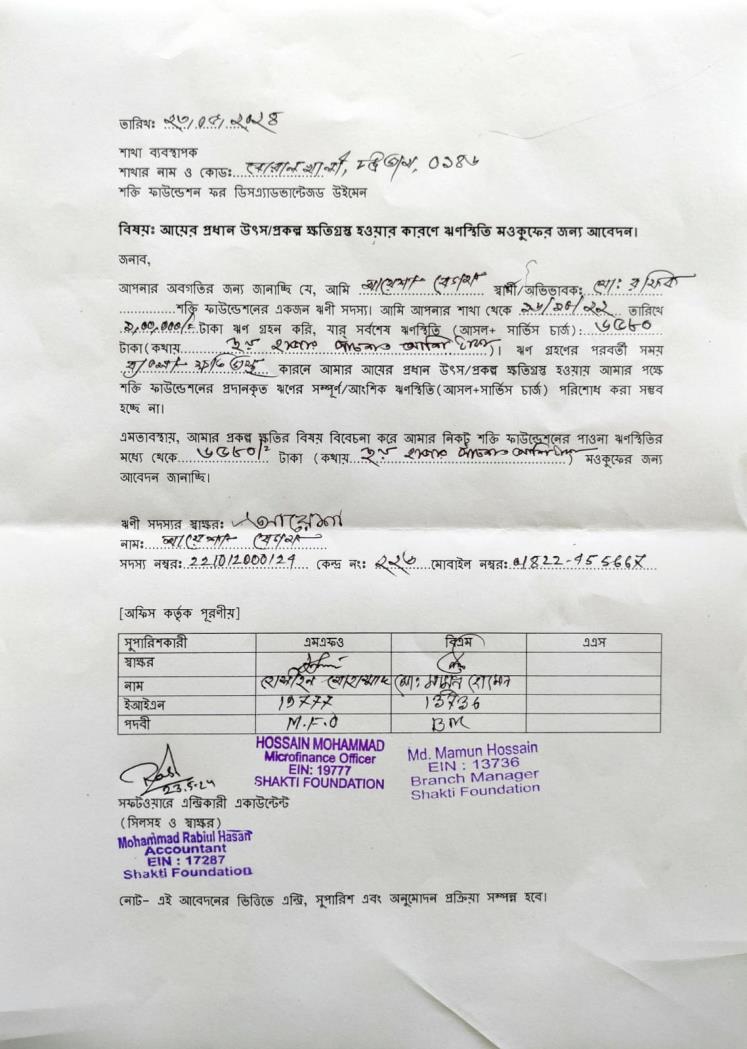 তারিখঃ ২৩/০৫/২০২৪
শাখা ব্যবস্থাপক
শাখার নাম ও কোডঃ বোয়ালখালী, চট্টগ্রাম, ০১৪৬
শক্তি ফাউন্ডেশন ফর ডিসএ্যাডভান্টেজড উইমেন
বিষয়ঃ আয়ের প্রধান উৎস/প্রকল্প ক্ষতিগ্রস্থ হওয়ার কারণে ঋণস্থিতি মওকুফের জন্য আবেদন।
জনাব,
আপনার অবগতির জন্য জানাচ্ছি যে, আমি আয়েশা বেগম স্বামী/অভিভাবক: মো: রফিক
শক্তি ফাউন্ডেশনের একজন ঋণী সদস্য। আমি আপনার শাখা থেকে তারিখে
টাকা ঋণ গ্রহন করি, যার সর্বশেষ ঋণস্থিতি (আসল+ সার্ভিস চার্জ): ৬৫৮০
টাকা(কথায় ছয় হাজার পাঁচশত আশি টাকা)। ঋণ গ্রহণের পরবর্তী সময়
কারনে আমার আয়ের প্রধান উৎস/প্রকল্প ক্ষতিগ্রস্থ হওয়ায় আমার পক্ষে
শক্তি ফাউন্ডেশনের প্রদানকৃত ঋণের সম্পূর্ণ/আংশিক ঋণস্থিতি(আসল+সার্ভিস চার্জ) পরিশোধ করা সম্ভব
হচ্ছে না।
এমতাবস্থায়, আমার প্রকল্প ক্ষতির বিষয় বিবেচনা করে আমার নিকট শক্তি ফাউন্ডেশনের পাওনা ঋণস্থিতির
মধ্যে থেকে ৬৫৮০/= টাকা (কথায় ছয় হাজার পাঁচশত আশি টাকা) মওকুফের জন্য
আবেদন জানাচ্ছি।
ঋণী সদস্যর স্বাক্ষরঃ আয়েশা
নামঃ আয়েশা বেগম
সদস্য নম্বরঃ 22101200012৭ কেন্দ্র নংঃ ২২৬ মোবাইল নম্বরঃ 01822-455667
[অফিস কর্তৃক পূরণীয়]
সুপারিশকারী এমএফও বিএম এএস
স্বাক্ষর
নাম হোসাইন মোহাম্মাদ মো: মামুন হোসেন
ইআইএন 19777 13736
পদবী M.F.O BM
HOSSAIN MOHAMMAD
Microfinance Officer
EIN: 19777
SHAKTI FOUNDATION
Md. Mamun Hossain
EIN : 13736
Branch Manager
Shakti Foundation
23.5.24
সফটওয়্যারে এন্ট্রিকারী একাউন্টেন্ট
(সিলসহ ও স্বাক্ষর)
Mohammad Rabiul Hasan
Accountant
EIN : 17287
Shakti Foundation
নোট- এই আবেদনের ভিত্তিতে এন্ট্রি, সুপারিশ এবং অনুমোদন প্রক্রিয়া সম্পন্ন হবে।